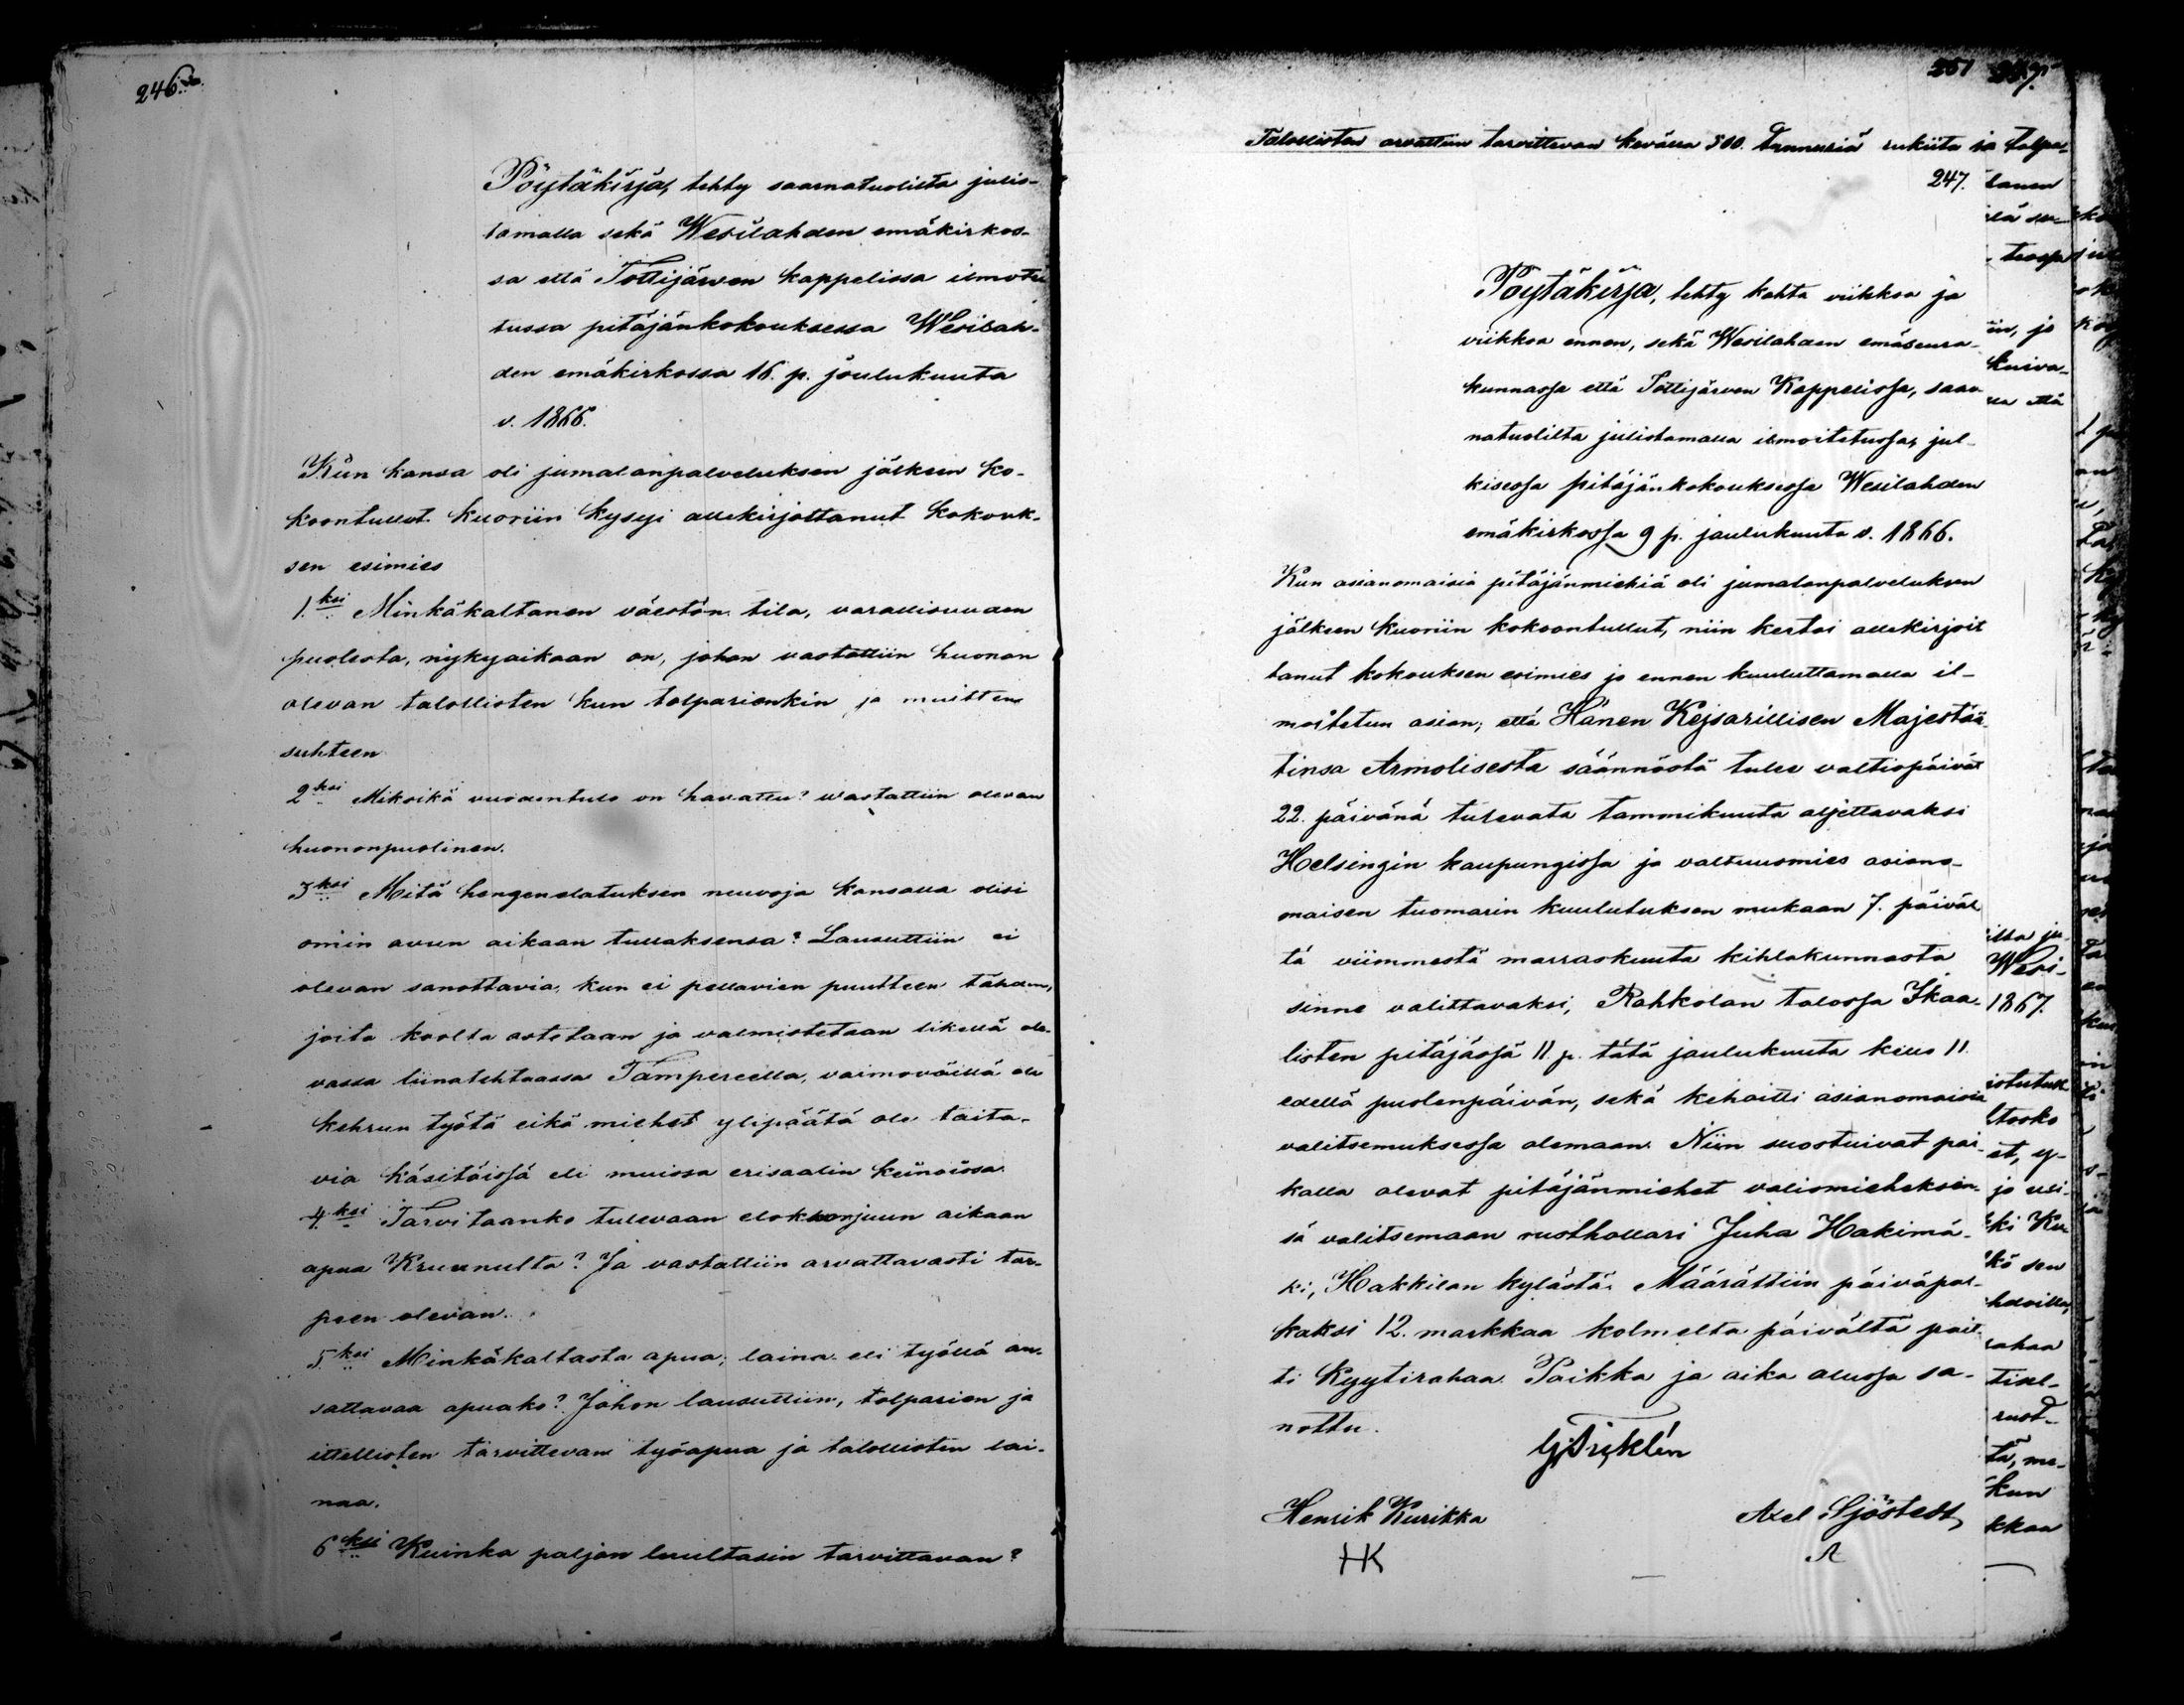 246.
Pöytäkirja, tehty saarnatuolilta julis-
tamalla sekä Wesilahden emäkirkos-
sa että Tottijärwen kappelissa ilmotet
tussa pitäjänkokouksessa Wesilah-
den emäkirkossa 16. p. joulukuuta
v. 1866.
Kun kansa oli jumalanpalveluksen jälkeen ko-
koontullut kuoriin kysyi allekirjottanut kokouk-
sen esimies
1.ksi Minkäkaltanen väestön tila, varallisuuden
puolesta, nykyaikaan on, johon vastattiin huonon
olevan talollisten kun tolparienkin ja muitten
suhteen
2ksi Miksikä vuodentulo on havattu? wastattiin olevan
huononpuolinen.
3ksi Mitä hengenelatuksen neuvoja kansalla olisi
omin avun aikaan tullaksensa? Lausuttiin ei
olevan sanottavia, kun ei pellavien puutteen tähden,
joita koolta ostetaan ja valmistetaan likellä ole-
vassa liinatehtaassa Tampereella, vaimoväellä ole
kehruu työtä eikä miehet ylipäätä ole taita-
via käsitöissä eli muissa erisaalin keinoissa.
4ksi Tarvitaanko tulevaan elokorjuun aikaan
apua Kruunulta? Ja vastattiin arvattavasti tar-
peen olevan.
5ksi Minkäkaltasta apua; laina eli työllä an-
sattavaa apuako? Johon lausuttiin, tolparien ja
itellisten tarvittevan työapua ja talollisten lai-
naa.
6ksi Kuinka paljon luultasin tarvittavan?
251
Talollisten arvattiin tarvittevan kevällä 300. tynnyriä rukiita ja tolpa-
247.
Pöytäkirja, tehty kahta viikkoa ja
viikkoa ennen, sekä Wesilahden emäseura-
kunnassa että Tottijärven Kappelissa, saar
natuolilta julistamalla ilmoitetussa, jul-
kisessa pitäjänkokouksessa Wesilahden
emäkirkossa 9 p. joulukuuta v. 1866.
Kun asianomaisia pitäjänmiehiä oli jumalanpaveluksen
jälkeen kuoriin kokoontullut, niin kertoi allekirjoit
tanut kokouksen esimies jo ennen kuuluttamalla il-
moitetun asian; että Hänen Kejsarillisen Majestää
tinsa Armolisesta säännöstä tulee valtiopäivät
22. päivänä tulevata tammikuuta aljettavaksi
Helsingin kaupungissa ja valtuusmies asiano-
maisen tuomarin kuulutuksen mukaan 7. päiväl
tä viimmestä marraskuuta kihlakunnasta
sinne valittavaksi, Rahkolan talossa Ikaa-
listen pitäjässä 11 p. tätä joulukuuta kello 11.
edellä puolenpäivän, sekä kehoitti asianomaisia
valitsemuksessa olemaan. Niin suostuivat pai-
kalla olevat pitäjänmiehet valiomieheksen-
sä valitsemaan rusthollari Juha Hakimä-
ki, Hakkilan kylästä. Määrättiin päiväpal-
kaksi 12. markkaa kolmelta päivältä pait-
ti kyytirahaa. Paikka ja aika alussa sa-
nottu.
Henrik Kurikka
Axel Sjöstedt
HK
lanen
in, jo
kuiva-
Wesi-
1867.
ltosko
et, y-
kö sen
rahaa
rust-
tä, me-
kun
kkaa